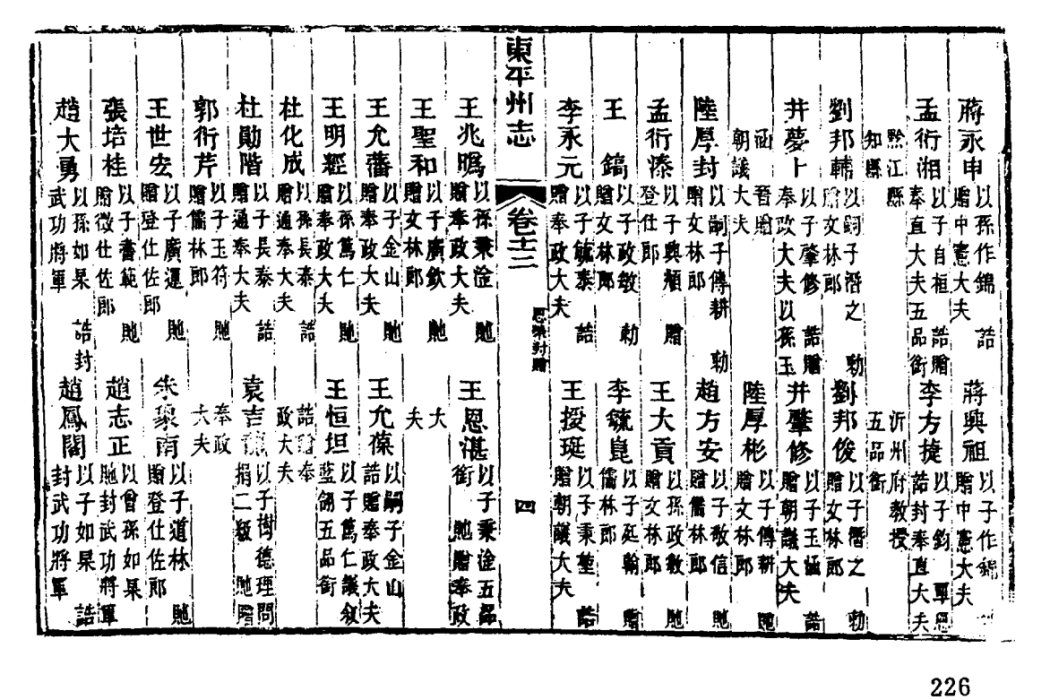 蔣永申 以孫作錦 誥贈中憲大夫
蔣興祖 以子作錦 贈中憲大夫
孟衍湘 以子自桓 誥贈奉直大夫五品銜
黔江縣知縣
李方捷 以子鈞 覃恩誥封奉直大夫
沂州府教授五品銜
劉邦輔 以嗣子潛之 勅贈文林郎
劉邦俊 以子潛之 勅贈文林郎
井夢卜 以子肇修 誥贈奉政大夫以孫玉
涵 晉贈朝議大夫
井肇修 以子玉涵 誥贈朝議大夫
陸厚彬 以子傳耕 貤贈文林郎
陸厚封 以嗣子傳耕 勅贈文林郎
趙方安 以子敬信 貤贈儒林郎
孟衍溱 以子興頫 贈登仕郎
王大貢 以孫政敷 貤贈文林郎
王鎬 以子政敷 勅贈文林郎
李毓崑 以子廷翰 贈儒林郎
李永元 以子毓泰 誥贈奉政大夫
王授珽 以子秉堃 誥贈朝議大夫
東平州志
卷十三
恩榮封贈
四
王兆鳴 以孫秉淦 貤贈奉政大夫
王恩湛 以子秉淦五品銜 貤贈奉政
大夫
王聖和 以子廣欽 貤贈文林郎
王允藩 以子金山 貤贈奉政大夫
王允葆 以嗣子金山誥贈奉政大夫
王明經 以孫篤仁 貤贈奉政大夫
王恒坦 以子篤仁議敘藍翎五品銜
誥贈奉政大夫
杜化成 以孫長泰 誥贈通奉大夫
杜勛階 以子長泰 誥贈通奉大夫
袁吉 以子樹德理問捐二級 貤贈
奉政大夫
郭衍芹 以子玉符贈儒林郎
王世宏 以子廣運 貤贈登仕佐郎
朱象南 以子道林 貤贈登仕佐郎
張培桂 以子書範贈徵仕佐郎
趙志正 以曾孫如果貤封武功將軍
趙大勇 以孫如果 誥封武功將軍
趙鳳閣 以子如果 誥封武功將軍
226